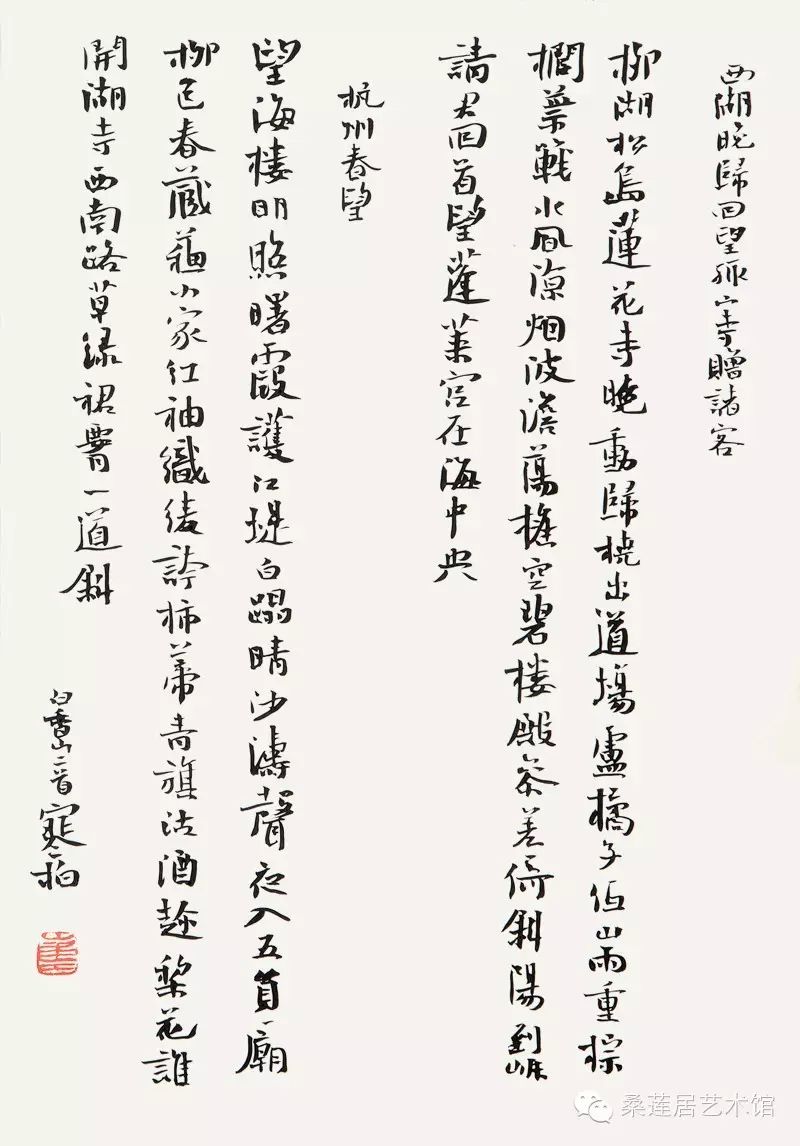 西湖晚歸回望孤山寺贈諸客
柳湖松島蓮花寺晚動歸橈出道場盧橘子低山雨重棕
櫚葉戰水風涼烟波澹蕩摇空碧楼殿參差倚斜陽到岸
請君回首望蓬萊宮在海中央
杭州春望
望海楼明照曙霞護江堤白蹋晴沙濤聲夜入五員廟
柳色春藏蘇小家紅袖織綾誇柿蒂青旗沽酒趁梨花誰
開湖寺西南路草緑裙腰一道斜
白香山二首
桑莲居艺术馆